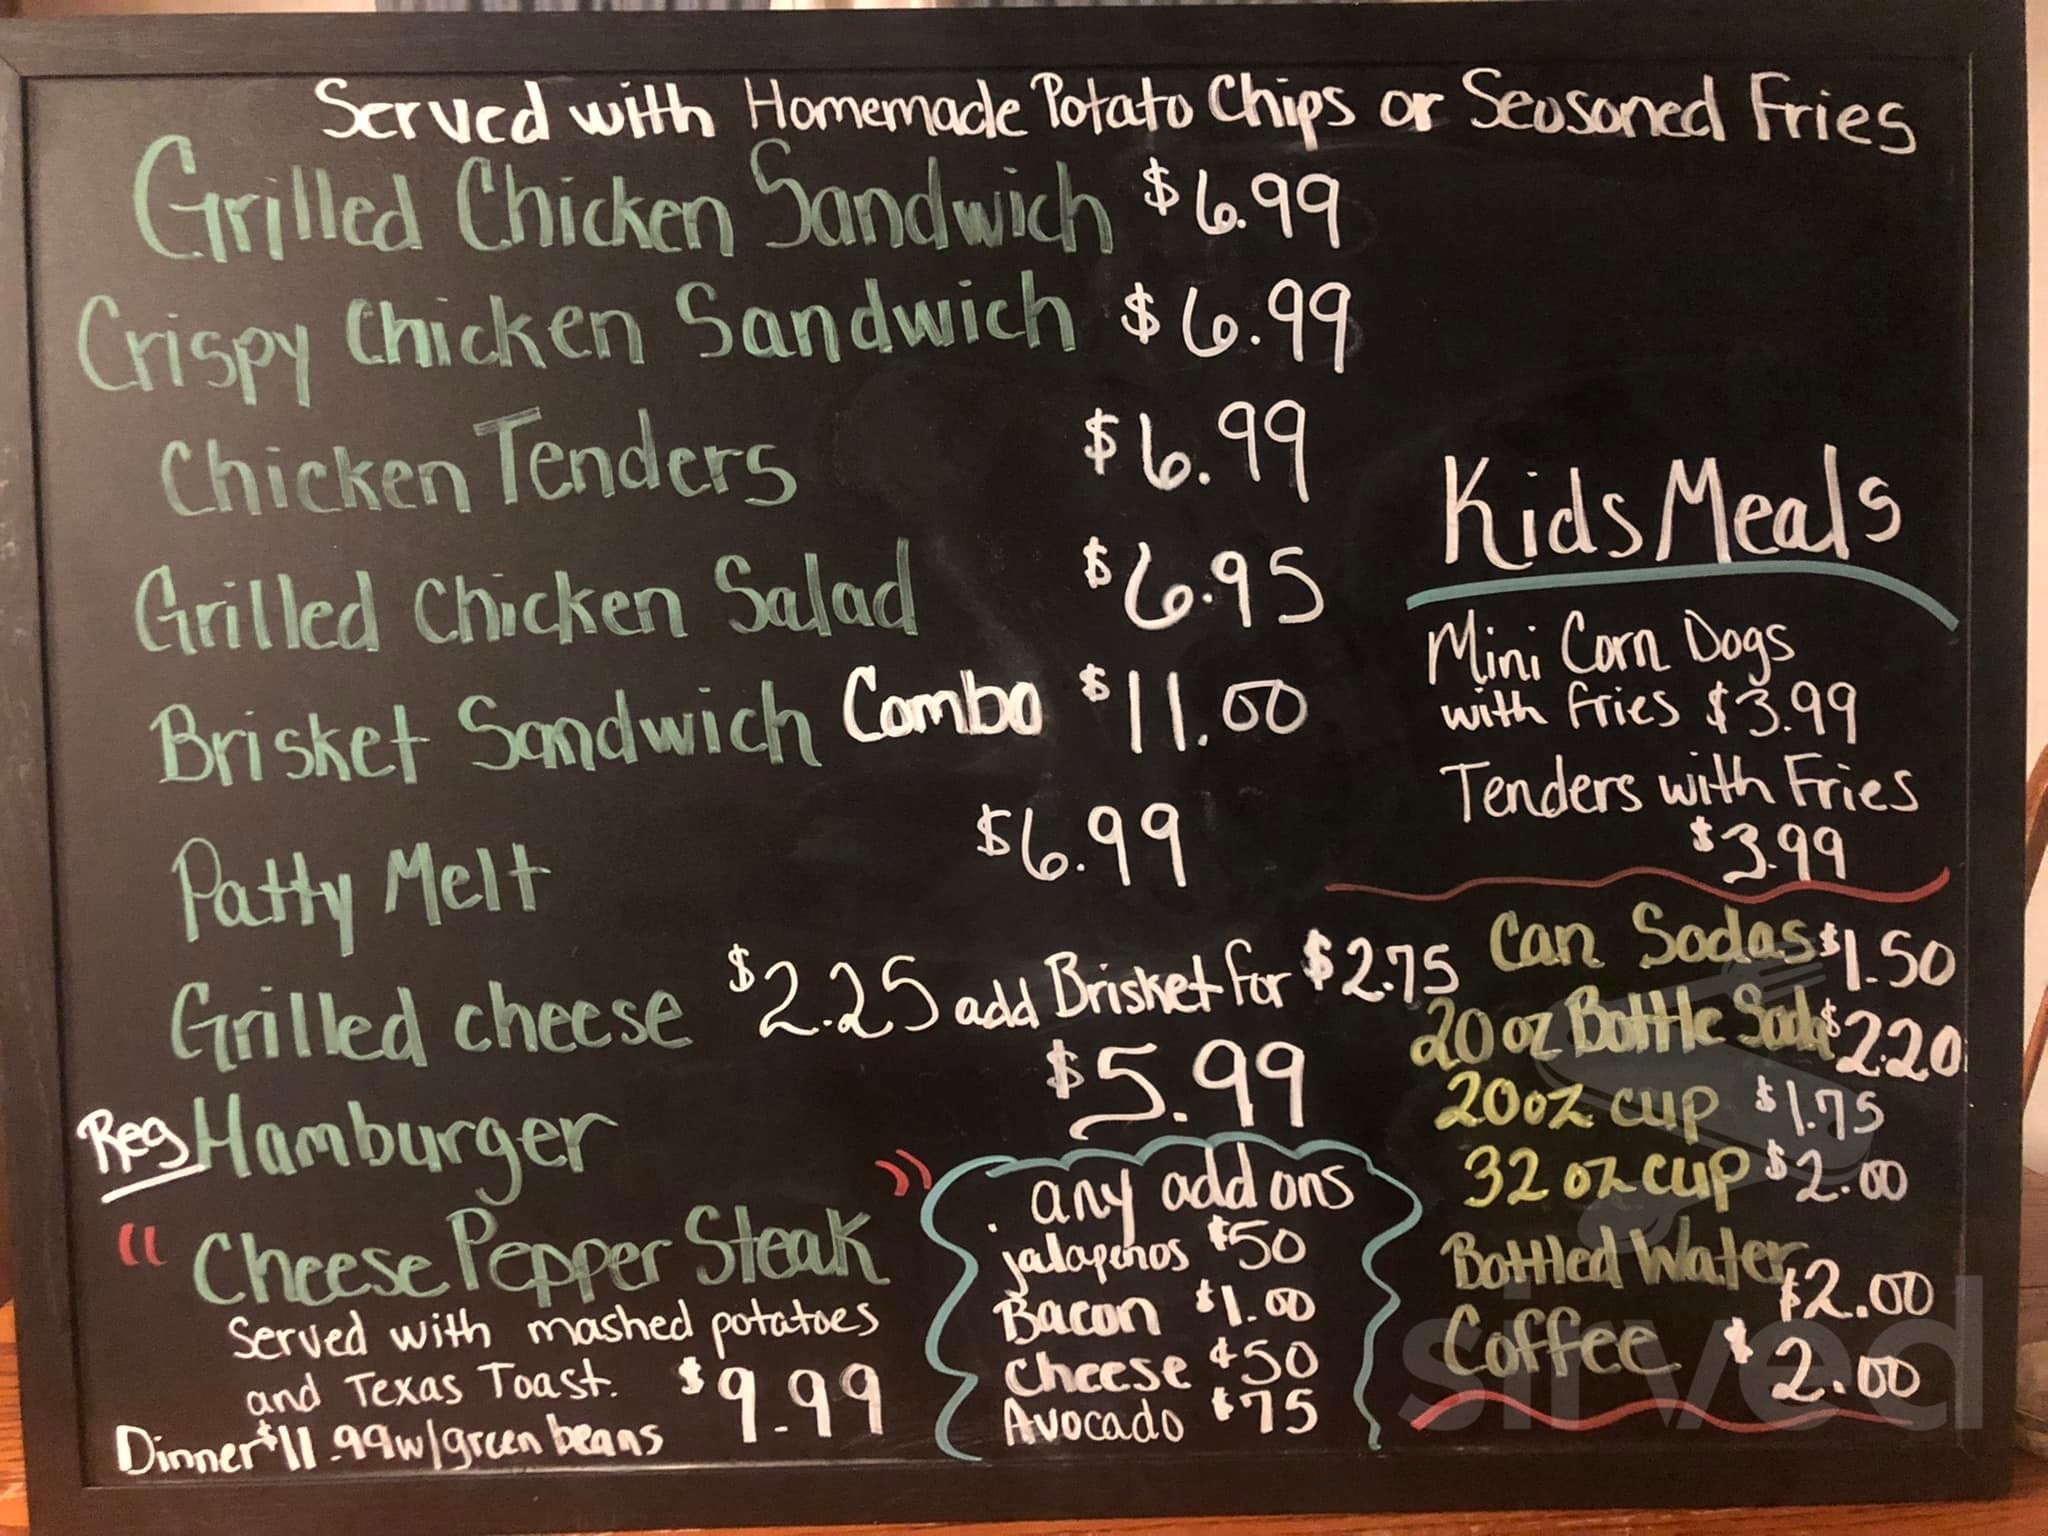 Served with Homemade Potato Chips or Seosoned Fries
Grilled Chicken Sandwich $6.99
Crispy Chicken Sandwich $6.99
Chicken Tenders $6.99
Grilled Chicken Salad $6.95
Brisket Sandwich Combo $11.00
Patty Melt $6.99
Grilled cheese $2.25 add Brisket for $2.75
Reg Hamburger $5.99
"Cheese Pepper Steak"
Served with mashed potatoes
and Texas Toast. $9.99
Dinner $11.99 w/green beans
any add ons
jalapenos $50
Bacon $1.00
Cheese $50
Avocado $75
Kids Meals
Mini Corn Dogs
with fries $3.99
Tenders with Fries
$3.99
Can Sodas $1.50
20 oz Bottle Soda $2.20
20oz cup $1.75
32 oz cup $2.00
Bottled Water $2.00
Coffee $2.00
sirved